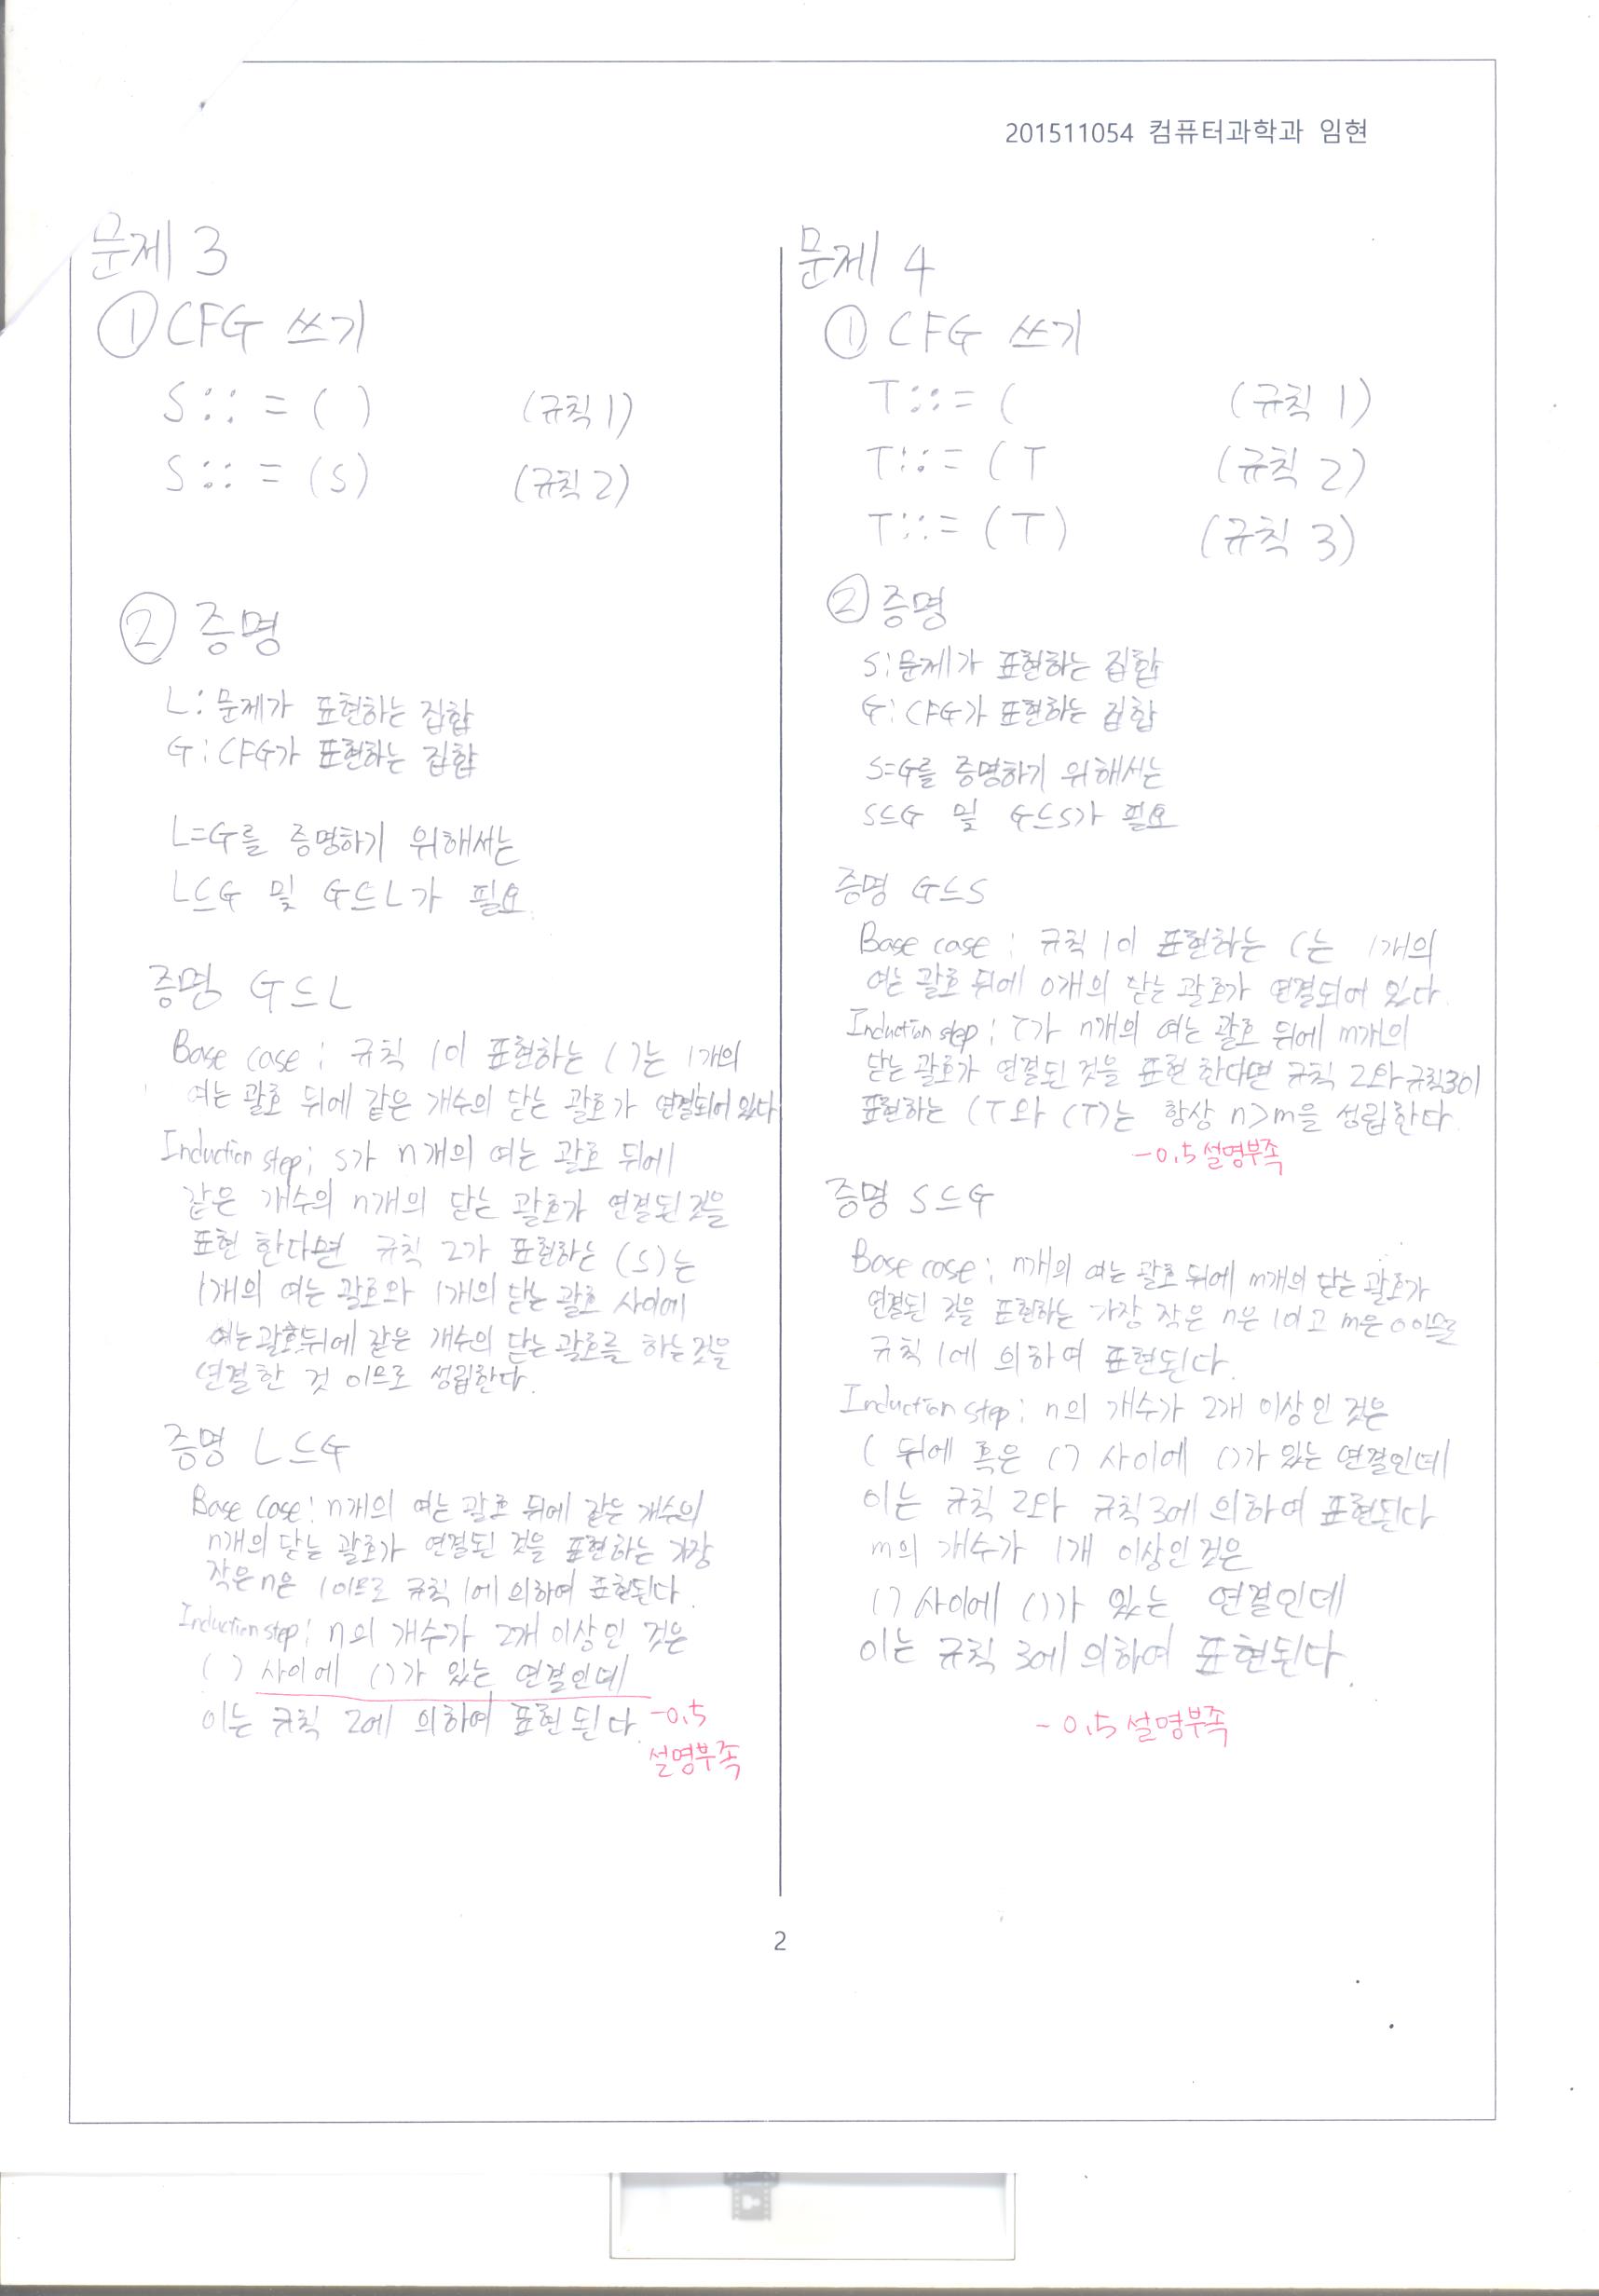 201511054 컴퓨터과학과 임현
문제 3
① CFG 쓰기
S::=( ) (규칙1)
S::=(S) (규칙2)
② 증명
L: 문제가 표현하는 집합
G: CFG가 표현하는 집합
L=G를 증명하기 위해서는
L⊆G 및 G⊆L가 필요.
증명 G⊆L
Base case: 규칙 1이 표현하는 ( )는 1개의
여는 괄호 뒤에 같은 개수의 닫는 괄호가 연결되어 있다
Induction step; S가 n개의 여는 괄호 뒤에
같은 개수의 n개의 닫는 괄호가 연결된 것을
표현 한다면 규칙 2가 표현하는 (S)는
1개의 여는 괄호와 1개의 닫는 괄호 사이에
여는 괄호뒤에 같은 개수의 닫는 괄호를 하는 것을
연결한 것 이므로 성립한다.
증명 L⊆G
Base case: n개의 여는 괄호 뒤에 같은 개수의
n개의 닫는 괄호가 연결된 것을 표현하는 가장
작은 n은 1이므로 규칙 1에 의하여 표현된다.
Induction step; n의 개수가 2개 이상인 것은
( ) 사이에 ( )가 있는 연결인데
이는 규칙 2에 의하여 표현된다. -0.5
설명부족
문제 4
① CFG 쓰기
T::=( (규칙 1)
T::=(T (규칙 2)
T::=(T) (규칙 3)
② 증명
S: 문제가 표현하는 집합
G: CFG가 표현하는 집합
S=G를 증명하기 위해서는
S⊆G 및 G⊆S가 필요
증명 G⊆S
Base case; 규칙 1이 표현하는 (는 1개의
여는 괄호 뒤에 0개의 닫는 괄호가 연결되어 있다.
Induction step; T가 n개의 여는 괄호 뒤에 m개의
닫는 괄호가 연결된 것을 표현 한다면 규칙 2와 규칙3이
표현하는 (T와 (T)는 항상 n>m을 성립한다.
-0.5 설명부족
증명 S⊆G
Base case; n개의 여는 괄호 뒤에 m개의 닫는 괄호가
연결된 것을 표현하는 가장 작은 n은 1이고 m은 0이므로
규칙 1에 의하여 표현된다.
Induction step; n의 개수가 2개 이상인 것은
( 뒤에 혹은 ( ) 사이에 ( )가 있는 연결인데
이는 규칙 2와 규칙3에 의하여 표현된다
m의 개수가 1개 이상인 것은
( ) 사이에 ( )가 있는 연결인데
이는 규칙 3에 의하여 표현된다.
-0.5 설명부족
2